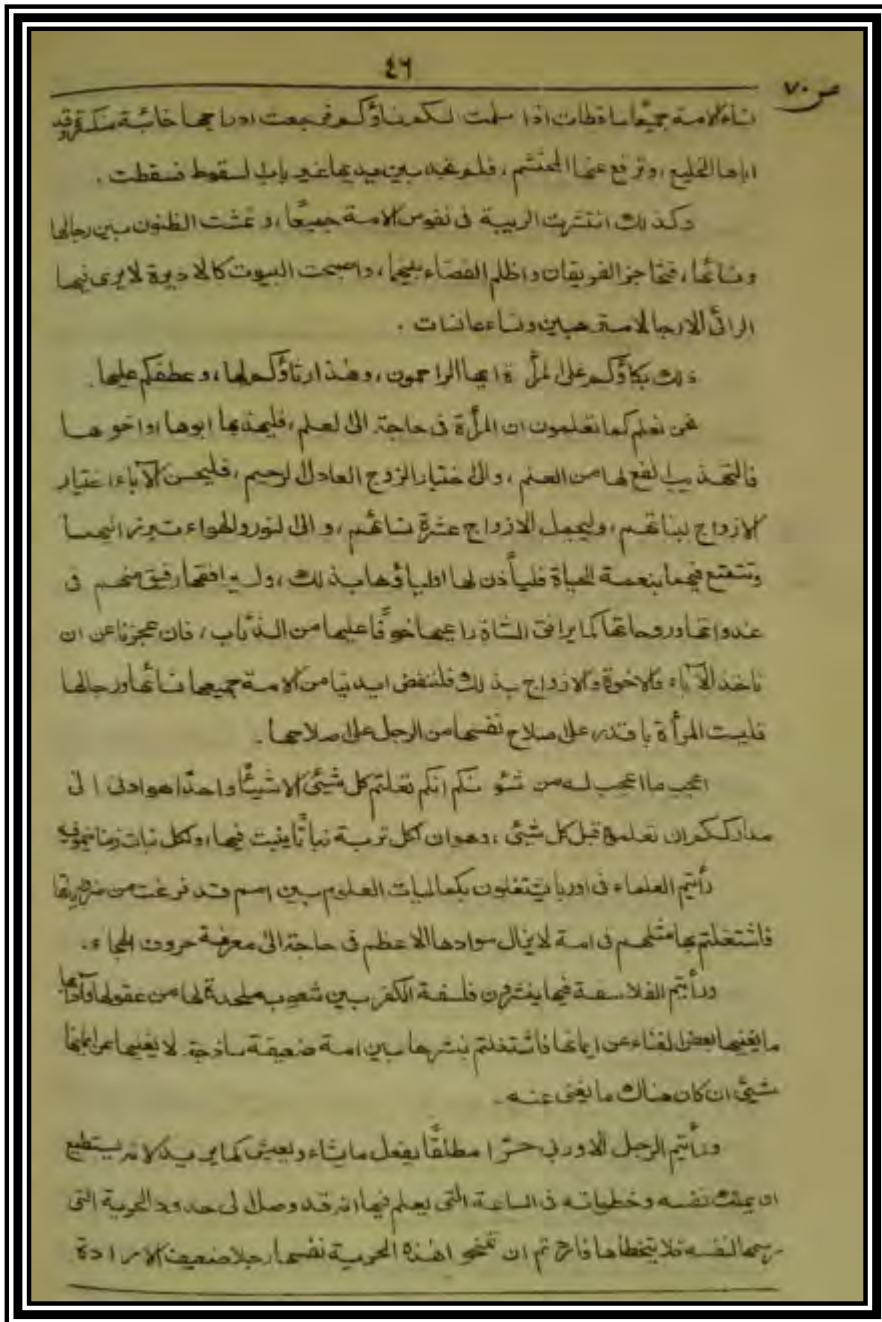 ٤٦
ص ٧٠
نساء الامة جميعًا ساقطات اذا سلمت لكم نساؤكم فرجعت ادراجها خائبة منكسرة وقد
اباها الخليع، وترفع عنها المحتشم، فلم تجد بين يديها غير باب السقوط فسقطت.
وكذلك انتشرت الريبة فى نفوس الامة جميعًا، وتمشت الظنون بين رجالها
ونسائها، فتحاجز الفريقان واظلم الفضاء بينهما، واصبحت البيوت كالاديرة لا يرى فيها
الرائى الا رجالا مسترهبين ونساء عانسات.
ذلك بكاؤكم على المرأة ايها الراحمون، وهذا رثاؤكم لها، وعطفكم عليها.
نحن نعلم كما تعلمون ان المرأة فى حاجة الى العلم، فليهذبها ابوها او اخوها
فالتهذيب انفع لها من العلم، والى اختيار الزوج العادل الرحيم، فليحسن الآباء اختيار
الازواج لبناتهم، وليجمل الازواج عشرة نسائهم، والى النور والهواء تبرز اليهما
وتتمتع فيهما بنعمة الحياة فليأذن لها اولياؤها بذلك، وليرافقها رفيق منهم فى
غدواتها وروحاتها كما يرافق الشاة راعيها خوفًا عليها من الذئاب، فان عجزنا عن ان
ناخذ الآباء والاخوة والازواج بذلك فلننفض ايدينا من الامة جميعها نسائها ورجالها
فليست المرأة باقدر على صلاح نفسها من الرجل على صلاحها.
اعجب ما اعجب له من شئونكم انكم تعلمتم كل شيئى الا شيئًا واحدًا هو ادنى الى
مدارككم ان تعلموه قبل كل شيئى، وهو ان لكل تربة نباتًا ينبت فيها، ولكل نبات زمنا ينمو فيه
رأيتم العلماء فى اوربا يشتغلون بكماليات العلوم بين امم قد فرغت من ضرورياتها
فاشتغلتم بها مثلهم فى امة لا يزال سوادها الاعظم فى حاجة الى معرفة حروف الهجاء.
ورأيتم الفلاسفة فيها ينشرون فلسفة الكفر بين شعوب ملحدة لها من عقولها وآدابها
ما يغنيها بعض الغناء عن ايمانها فاشتغلتم بنشرها بين امة ضعيفة ساذجة لا يغنيها عن ايمانها
شيئى ان كان هناك ما يغنى عنه.
ورأيتم الرجل الاوربى حرّا مطلقًا يفعل ما يشاء ويعيش كما يريد لانه يستطيع
ان يملك نفسه وخطواته فى الساعة التى يعلم فيها انه قد وصل الى حدود الحرية التى
رسمها لنفسه فلا يتخطاها فاردتم ان تمنحوا هذه الحرية نفسها رجلا ضعيف الارادة